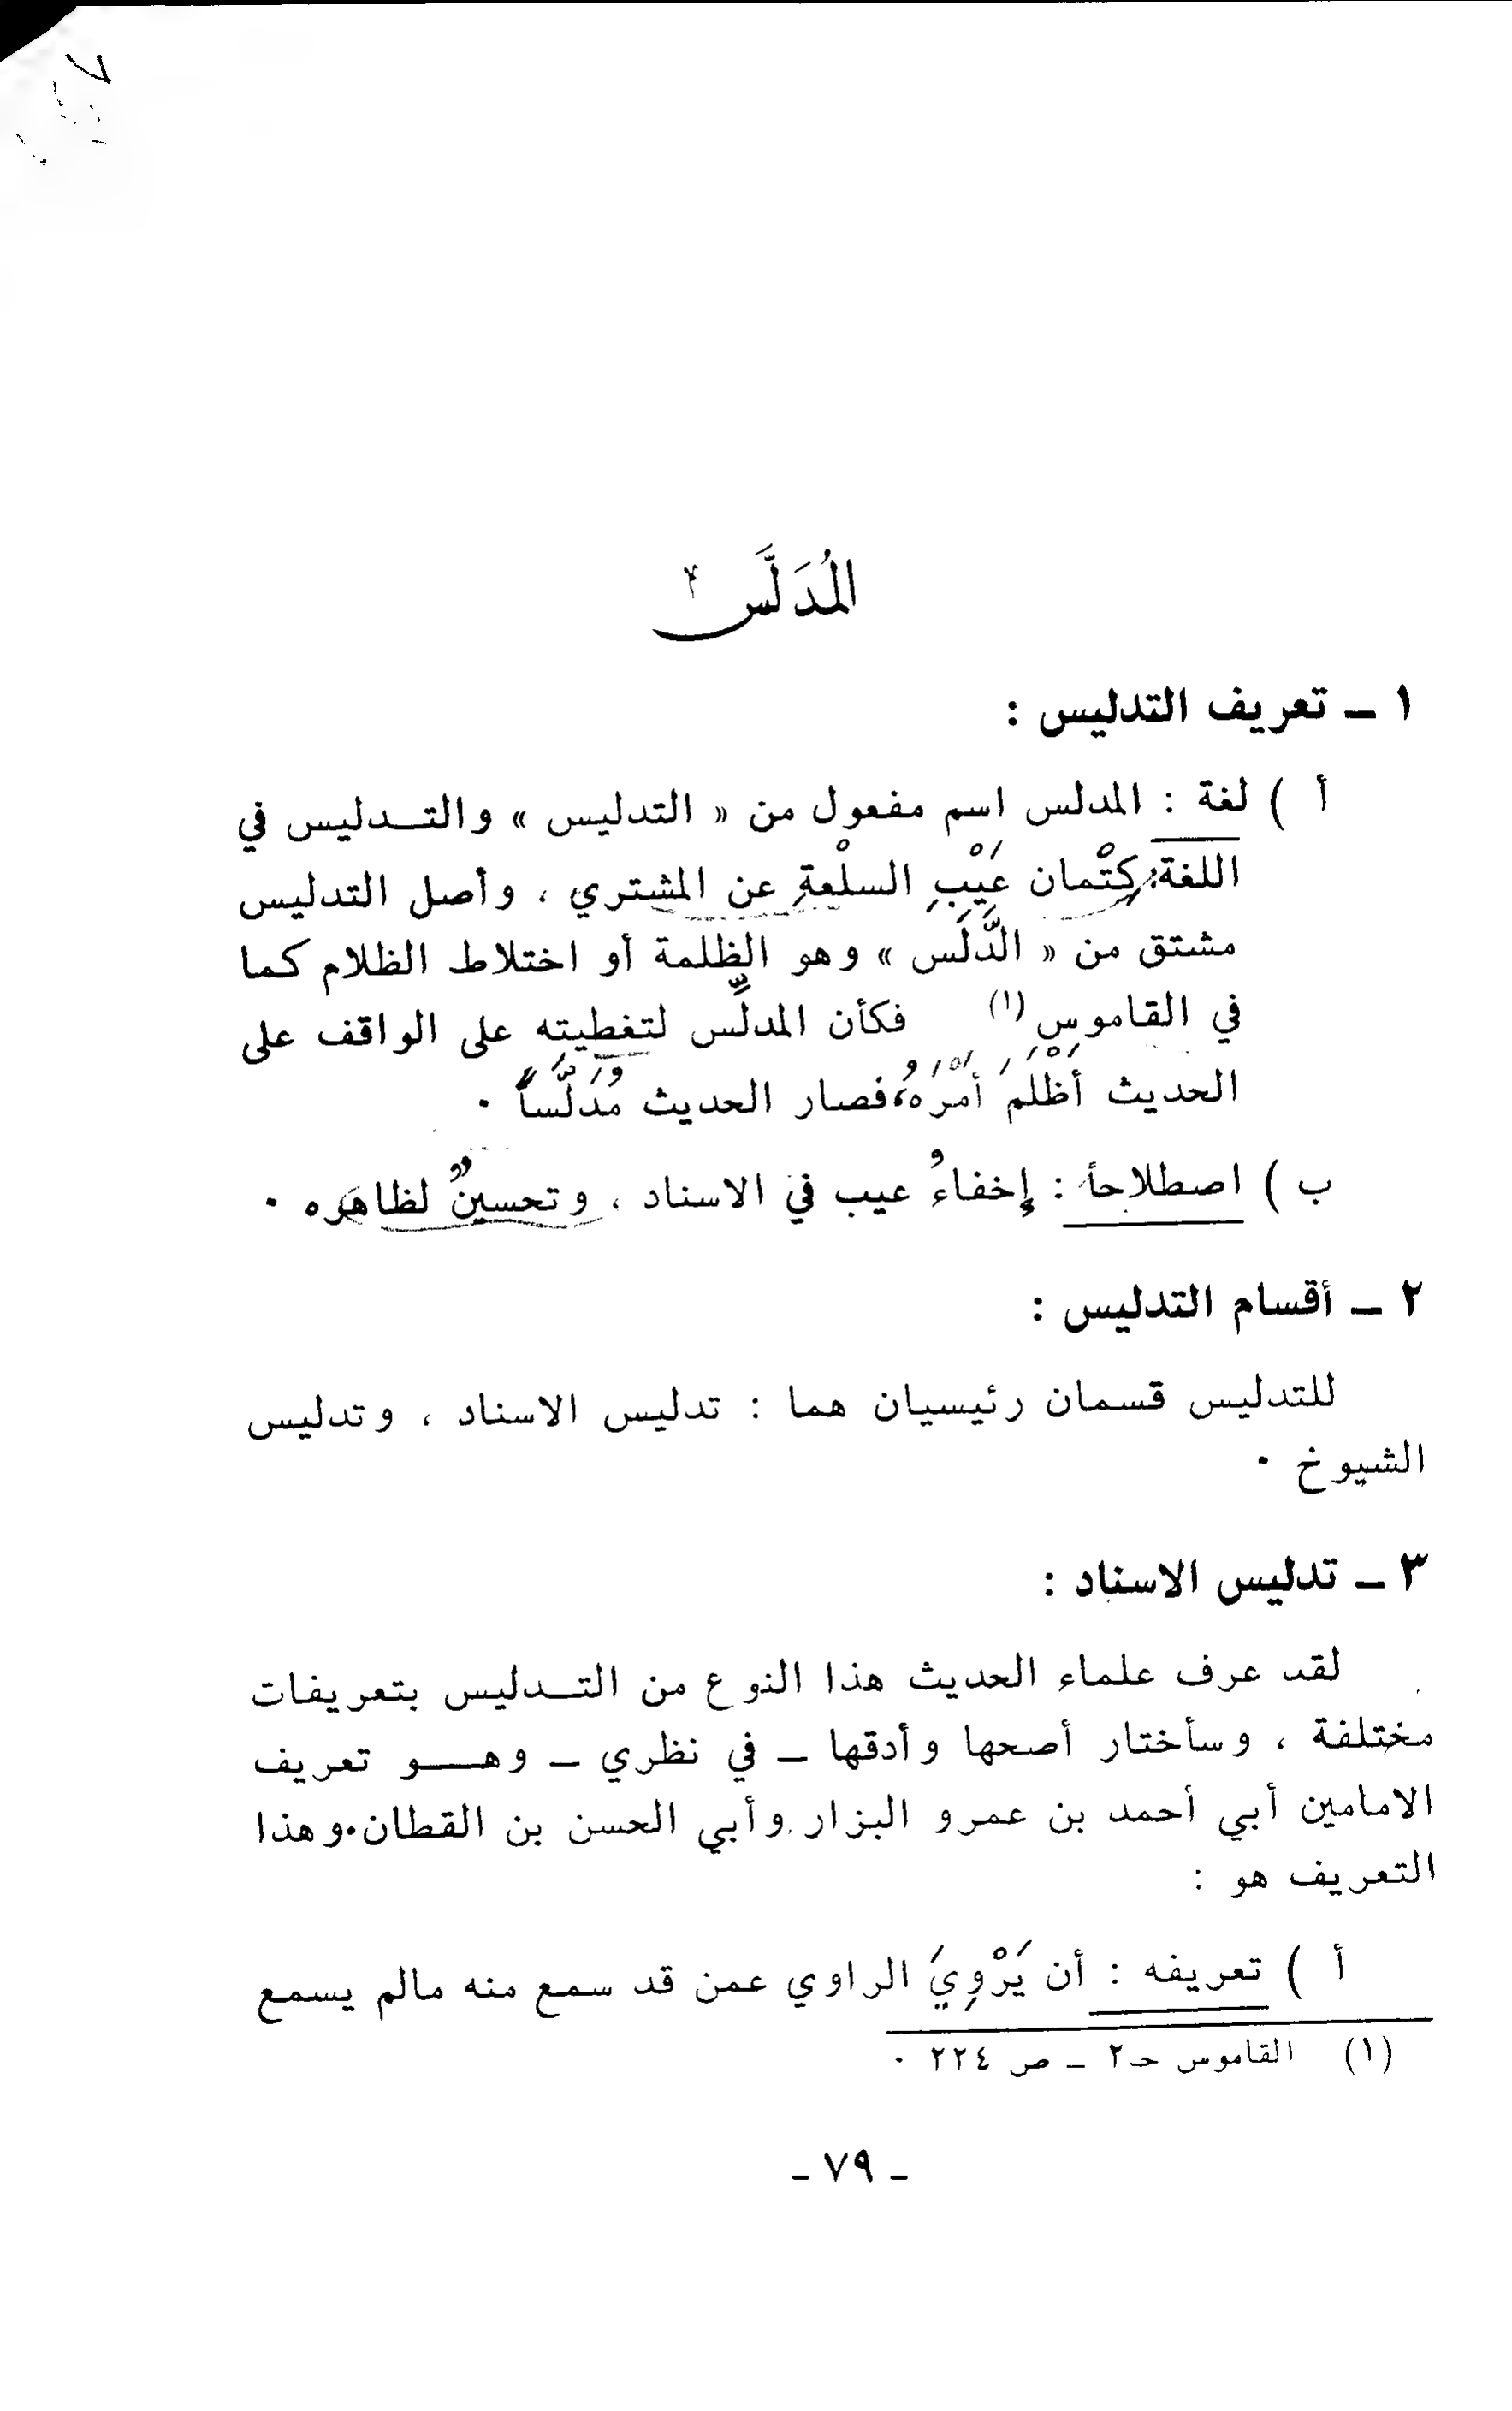 المُدَلَّس
١ ـ تعريف التدليس :
أ ) لغة : المدلس اسم مفعول من « التدليس » والتـدليس في
اللغة: كِتْمان عَيْبِ السلْعةِ عن المشتري ، وأصل التدليس
مشتق من « الدَّلَس » وهو الظلمة أو اختلاط الظلام كما
في القاموس (١) فكأن المدلِّس لتغطيتِه على الواقف على
الحديث أَظْلَمَ أَمْرَهُ، فصار الحديث مُدَلَّساً ٠
ب ) اصطلاحاً : إخفاءُ عيب في الاسناد ، وتحسينٌ لظاهره ٠
٢ ـ أقسام التدليس :
للتدليس قسمان رئيسيان هما : تدليس الاسناد ، وتدليس
الشيوخ ٠
٣ ـ تدليس الاسناد :
لقد عرف علماء الحديث هذا النوع من التـدليس بتعريفات
مختلفة ، وسأختار أصحها وأدقها ـ في نظري ـ وهـو تعريف
الامامين أبي أحمد بن عمرو البزار وأبي الحسن بن القطان٠وهذا
التعريف هو :
أ ) تعريفه : أن يَرْوِيَ الراوي عمن قد سمع منه مالم يسمع
(١) القاموس حـ٢ ـ ص ٢٢٤ ٠
ـ ٧٩ ـ